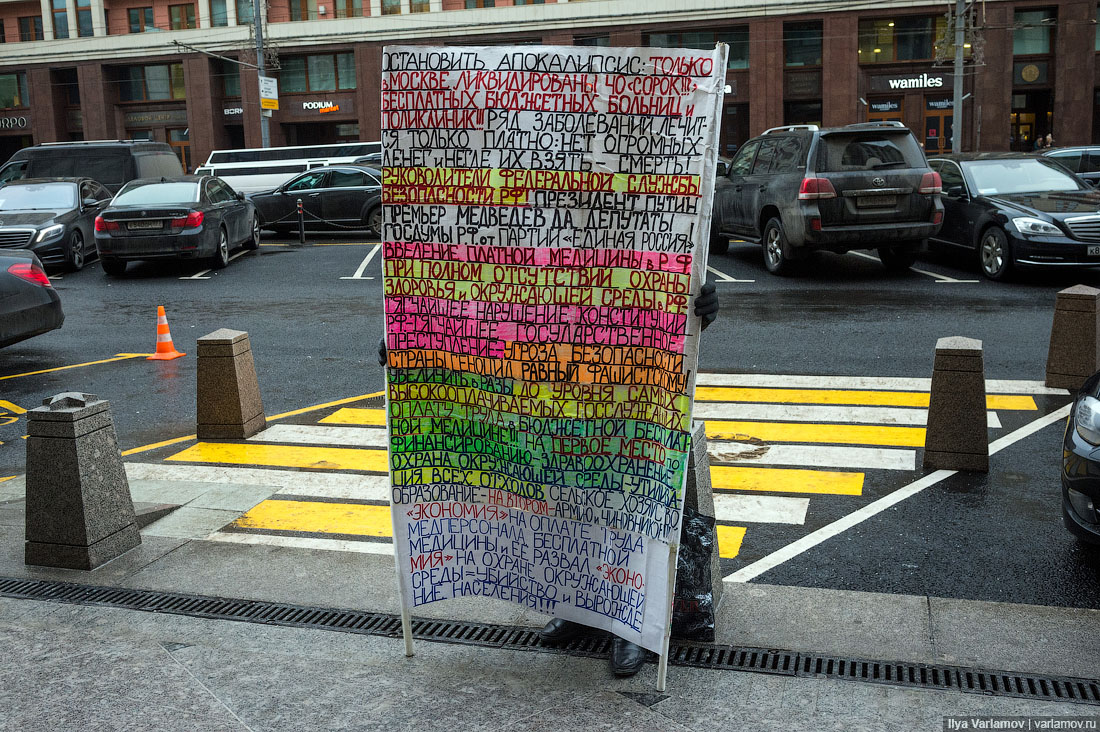 ОСТАНОВИТЬ АПОКАЛИПСИС: ТОЛЬКО
МОСКВЕ ЛИКВИДИРОВАНЫ 40 «СОРОК!!!»
БЕСПЛАТНЫХ БЮДЖЕТНЫХ БОЛЬНИЦ и
ПОЛИКЛИНИК!!! РЯД ЗАБОЛЕВАНИЙ ЛЕЧИТ-
СЯ ТОЛЬКО ПЛАТНО: НЕТ ОГРОМНЫХ
ДЕНЕГ и НЕГДЕ ИХ ВЗЯТЬ – СМЕРТЬ!
РУКОВОДИТЕЛИ ФЕДЕРАЛЬНОЙ СЛУЖБЫ
БЕЗОПАСНОСТИ РФ, ПРЕЗИДЕНТ ПУТИН
ПРЕМЬЕР МЕДВЕДЕВ ДА ДЕПУТАТЫ
ГОСДУМЫ РФ от ПАРТИИ «ЕДИНАЯ РОССИЯ»!
ВВЕДЕНИЕ ПЛАТНОЙ МЕДИЦИНЫ в РФ
ПРИ ПОЛНОМ ОТСУТСТВИИ ОХРАНЫ
ЗДОРОВЬЯ и ОКРУЖАЮЩЕЙ СРЕДЫ РФ-
ТЯГЧАЙШЕЕ НАРУШЕНИЕ КОНСТИТУЦИИ
РФ-ТЯГЧАЙШЕЕ ГОСУДАРСТВЕННОЕ
ПРЕСТУПЛЕНИЕ-УГРОЗА БЕЗОПАСНОСТИ
СТРАНЫ, ГЕНОЦИД РАВНЫЙ ФАШИСТСКОМУ!
в РАЗЫ ДО УРОВНЯ САМЫХ
ВЫСОКООПЛАЧИВАЕМЫХ ГОССЛУЖАЩИХ
ОПЛАТУ в БЮДЖЕТНОЙ БЕСПЛАТ
НОЙ МЕДИЦИНЕ!!! НА ПЕРВОЕ МЕСТО по
ФИНАНСИРОВАНИЮ ЗДРАВООХРАНЕНИЕ
ОХРАНА ОКРУЖАЮЩЕЙ СРЕДЫ УТИЛИЗА
ЦИЯ ВСЕХ ОТХОДОВ СЕЛЬСКОЕ ХОЗЯЙСТВО
ОБРАЗОВАНИЕ-НА ВТОРОМ-АРМИЮ и ЧИНОВНИКОВ
«ЭКОНОМИЯ» НА ОПЛАТЕ ТРУДА
МЕДПЕРСОНАЛА БЕСПЛАТНОЙ
МЕДИЦИНЫ и ЕЁ РАЗВАЛ «ЭКОНО-
МИЯ» НА ОХРАНЕ ОКРУЖАЮЩЕЙ
СРЕДЫ=УБИЙСТВО и ВЫРОЖДЕ
НИЕ НАСЕЛЕНИЯ!!!
PODIUM
market
BORK
wamiles
wamiles
wamiles
Ilya Varlamov | varlamov.ru